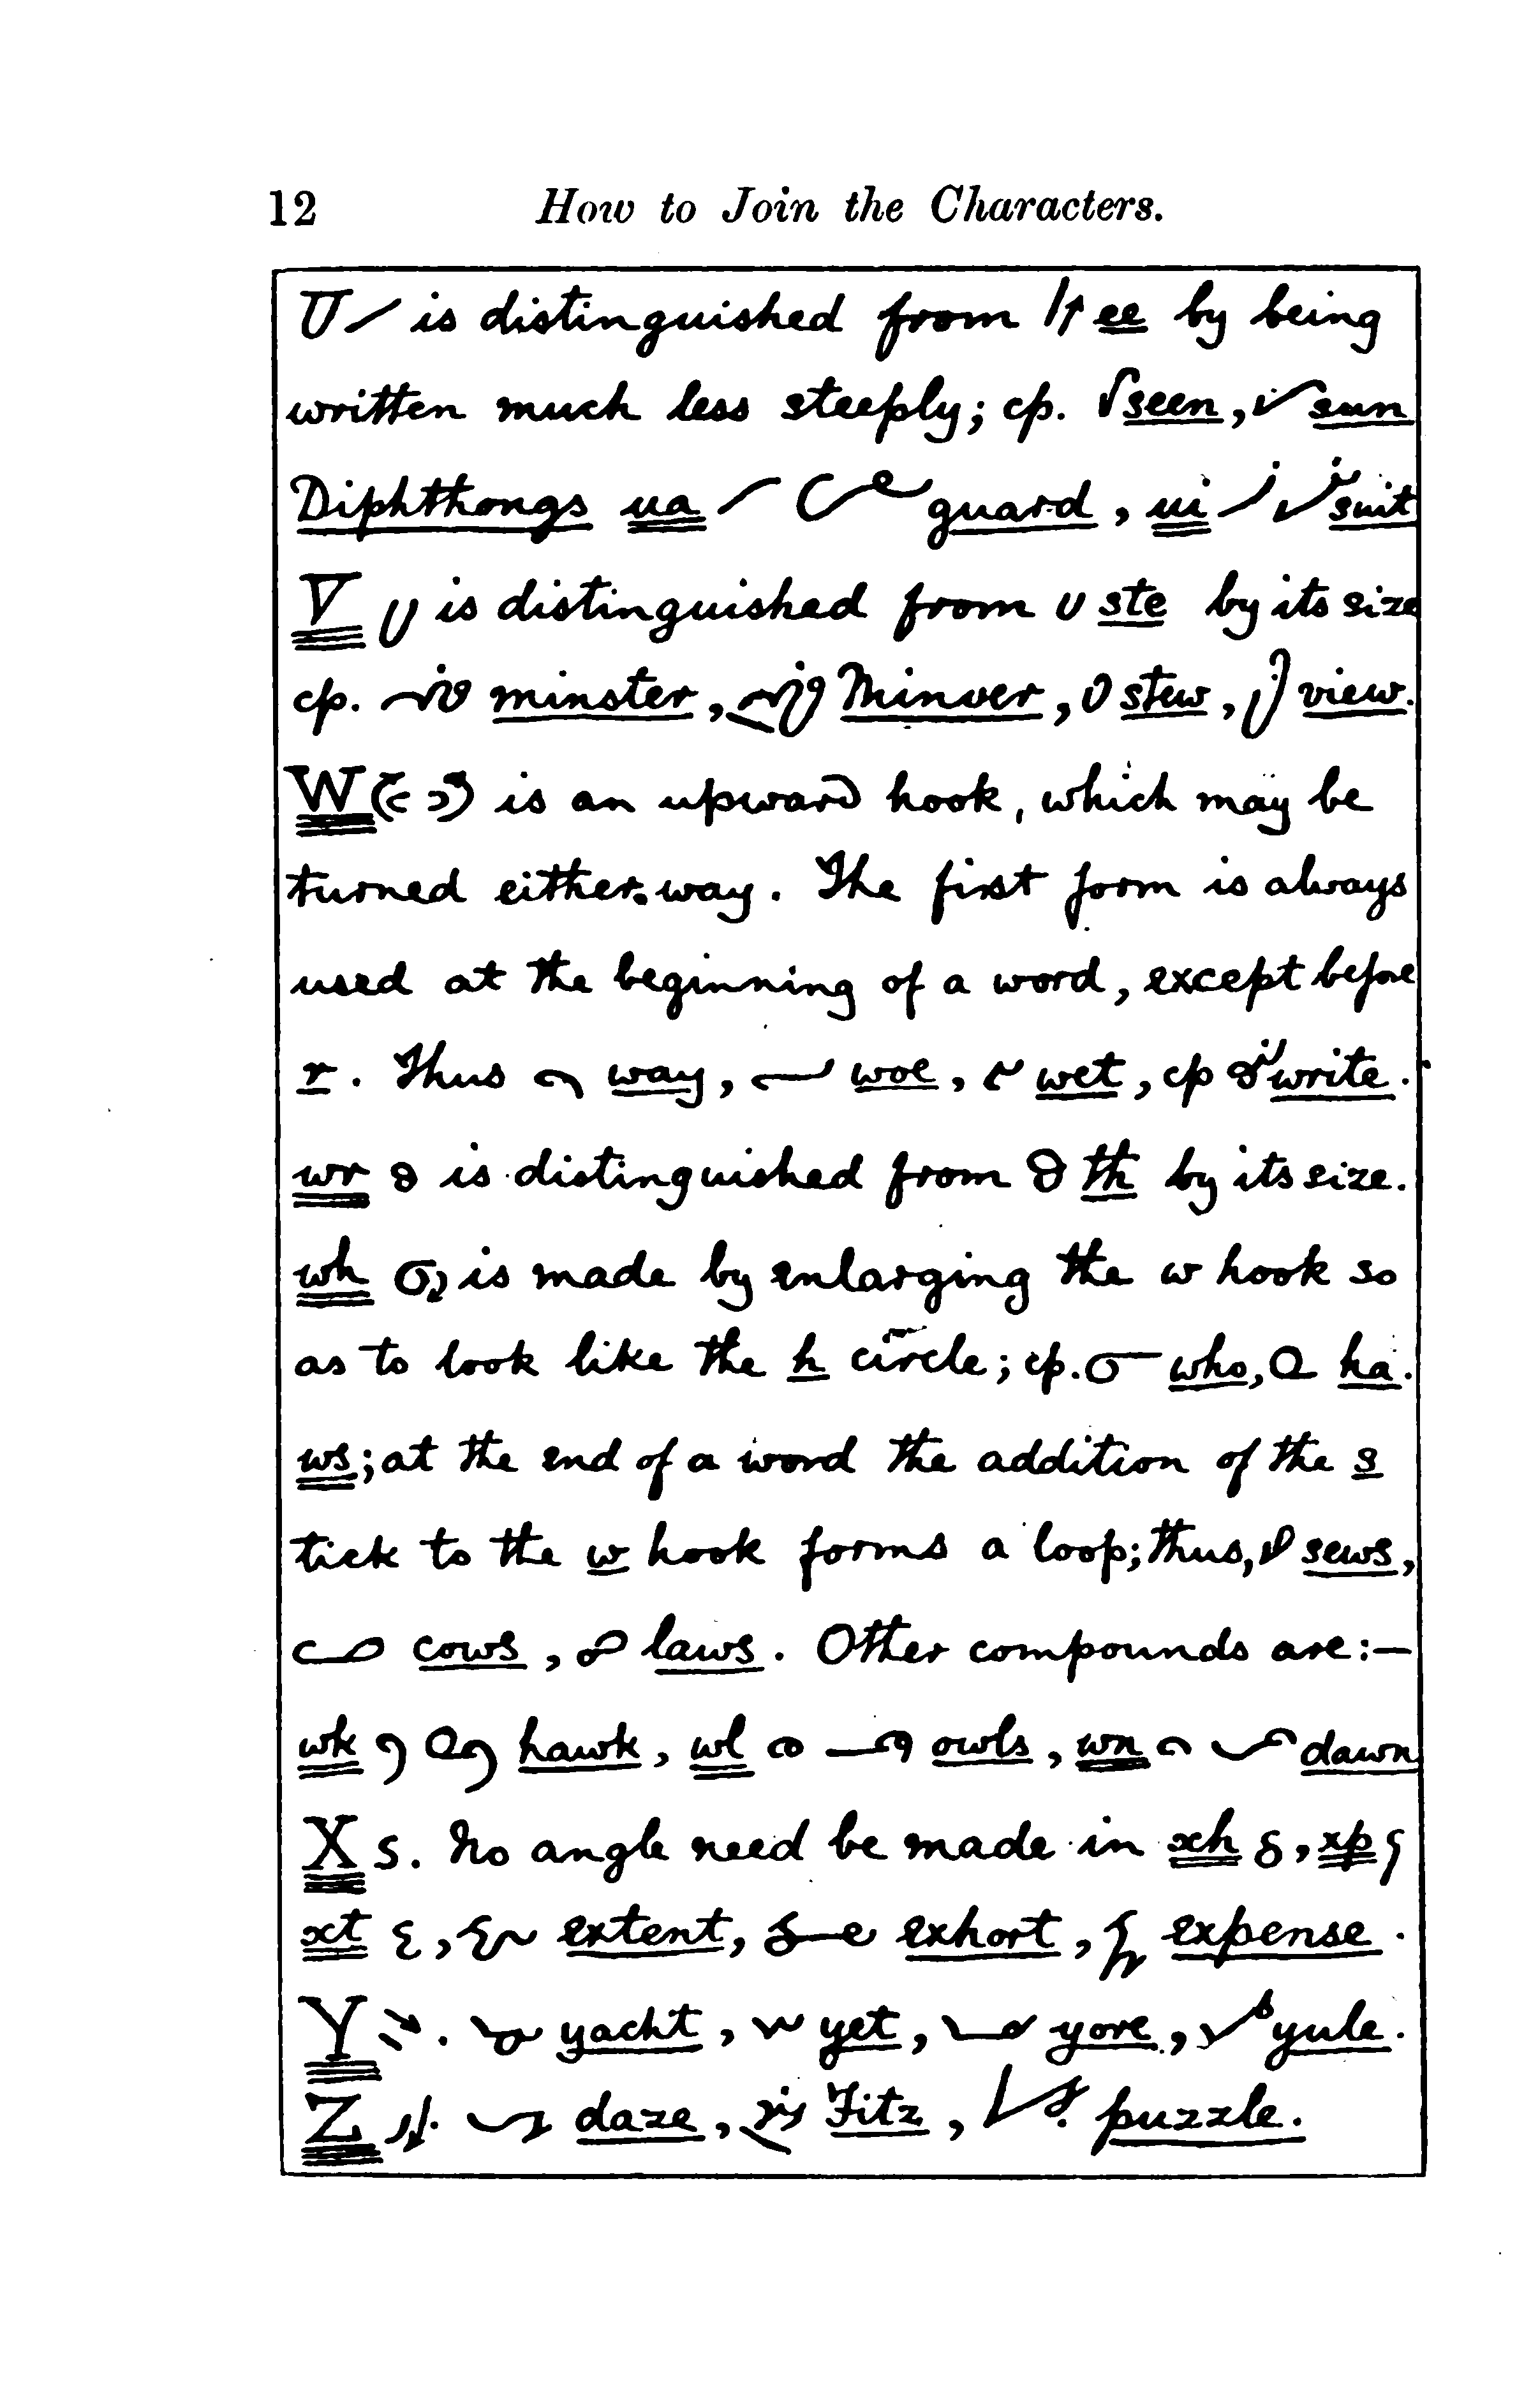 12 How to Join the Characters.
U is distinguished from ee by being
written much less steeply; cp. seen, sun
Diphthongs ua guard, ui suit
V is distinguished from ste by its size
cp. minster, Minver, stew, view.
W is an upward hook, which may be
turned either way. The first form is always
used at the beginning of a word, except before
r. Thus way, woe, wet, cp write.
wr is distinguished from th by its size.
wh is made by enlarging the w hook so
as to look like the h circle; cp. who, ha.
ws; at the end of a word the addition of the s
tick to the w hook forms a loop; thus, sews,
cows, laws. Other compounds are:—
wk hawk, wl owls, wn dawn
X. No angle need be made in xh, xp
xt, extent, exhort, expense.
Y. yacht, yet, yore, yule.
Z. daze, Fitz, puzzle.